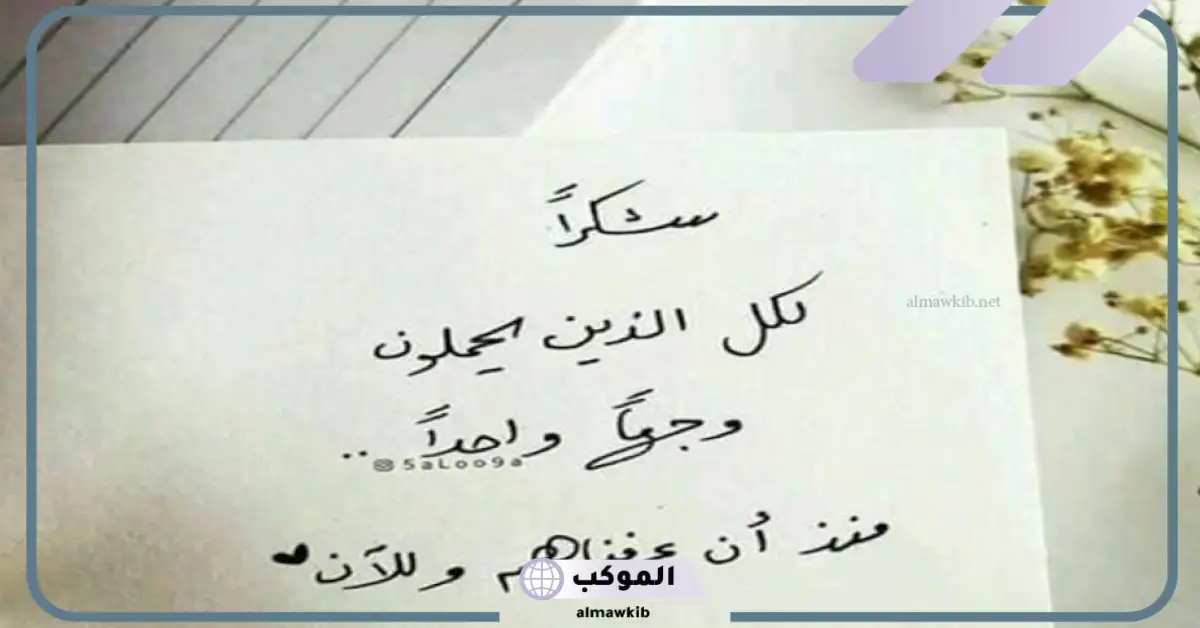 شكراً
almawkib.net
لكل الذين يحملون
وجهاً واحداً ..
5aLoo9a
منذ أن عرفناهم وللآن
الموكب
almawkib